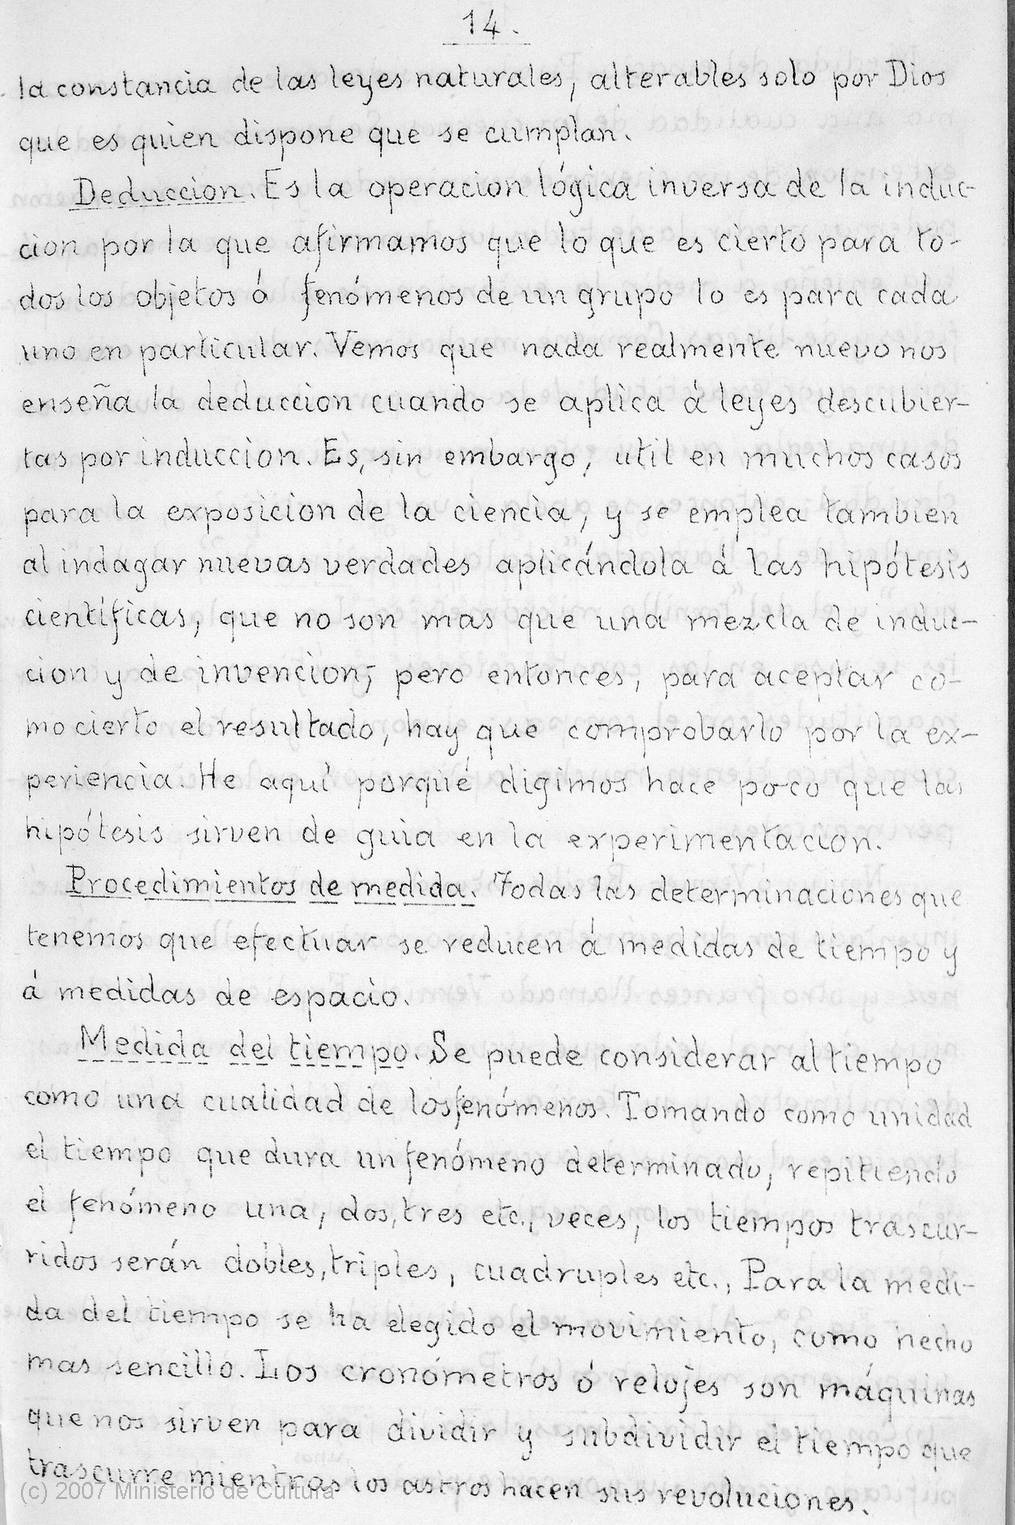 14.
la constancia de las leyes naturales, alterables solo por Dios
que es quien dispone que se cumplan.
Deduccion. Es la operacion lógica inversa de la induc-
cion por la que afirmamos que lo que es cierto para to-
dos los objetos ó fenómenos de un grupo lo es para cada
uno en particular. Vemos que nada realmente nuevo nos
enseña la deduccion cuando se aplica á leyes descubier-
tas por induccion. Es, sin embargo, util en muchos casos
para la exposicion de la ciencia, y se emplea tambien
al indagar nuevas verdades aplicándola á las hipótesis
científicas, que no son mas que una mezcla de induc-
cion y de invencion; pero entonces, para aceptar co-
mo cierto el resultado, hay que comprobarlo por la ex-
periencia. He aquí porqué digimos hace poco que las
hipótesis sirven de guia en la experimentacion.
Procedimientos de medida. Todas las determinaciones que
tenemos que efectuar se reducen á medidas de tiempo y
á medidas de espacio.
Medida del tiempo. Se puede considerar al tiempo
como una cualidad de los fenómenos. Tomando como unidad
el tiempo que dura un fenómeno determinado, repitiendo
el fenómeno una, dos, tres etc., veces, los tiempos trascur-
ridos serán dobles, triples, cuadruples etc., Para la medi-
da del tiempo se ha elegido el movimiento, como hecho
mas sencillo. Los cronómetros ó relojes son máquinas
que nos sirven para dividir y subdividir el tiempo que
trascurre mientras los astros hacen sus revoluciones.
(c) 2007 Ministerio de Cultura